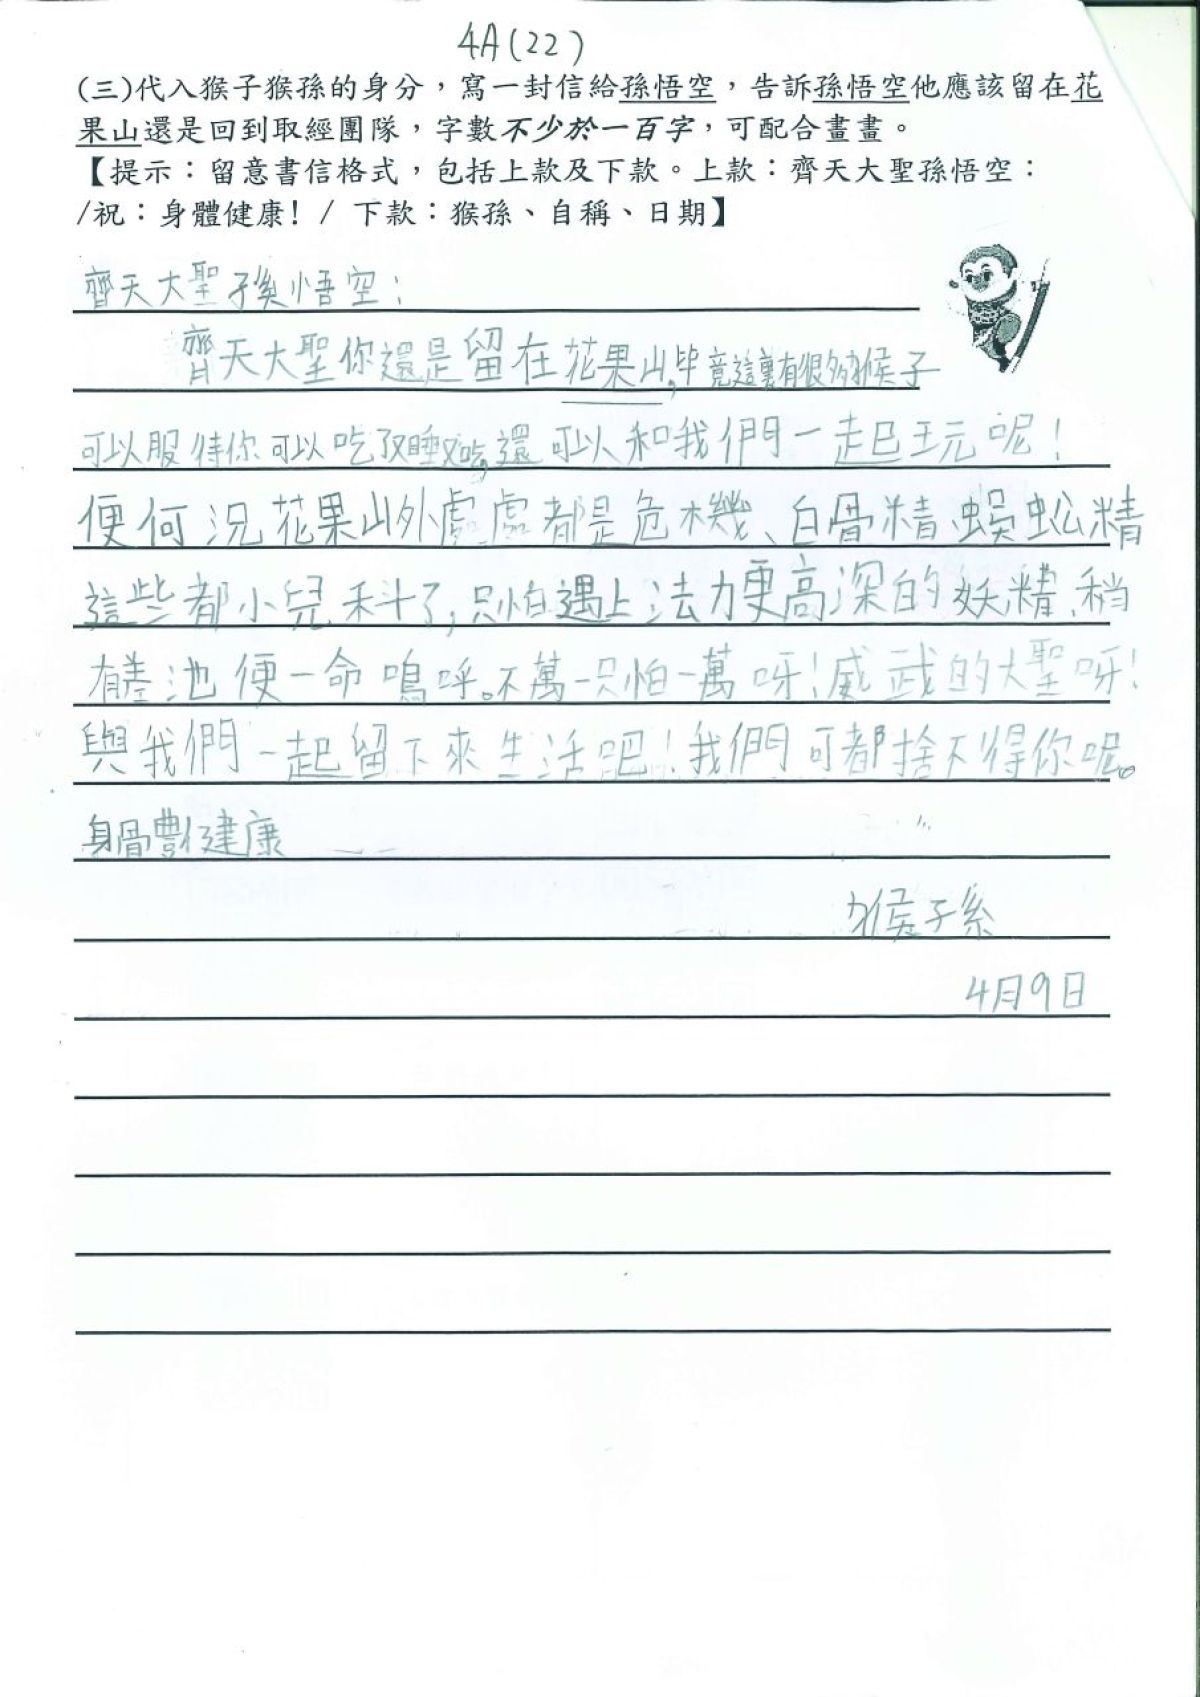 4A(22)
(三)代入猴子猴孫的身分，寫一封信給孫悟空，告訴孫悟空他應該留在花
果山還是回到取經團隊，字數不少於一百字，可配合畫畫。
【提示：留意書信格式，包括上款及下款。上款：齊天大聖孫悟空：
/祝：身體健康! / 下款：猴孫、自稱、日期】
齊天大聖孫悟空：
齊天大聖你還是留在花果山，畢竟這裏有很多猴子
可以服侍你可以吃了睡睡了吃，還可以和我們一起玩呢！
便何況花果山外處處都是危機、白骨精、蜈蚣精
這些都小兒科了，只怕遇上法力更高深的妖精、稍
有差池便一命嗚呼。不萬一只怕一萬呀！威武的大聖呀！
與我們一起留下來生活吧！我們可都捨不得你呢。
身體健康
猴子孫
4月9日